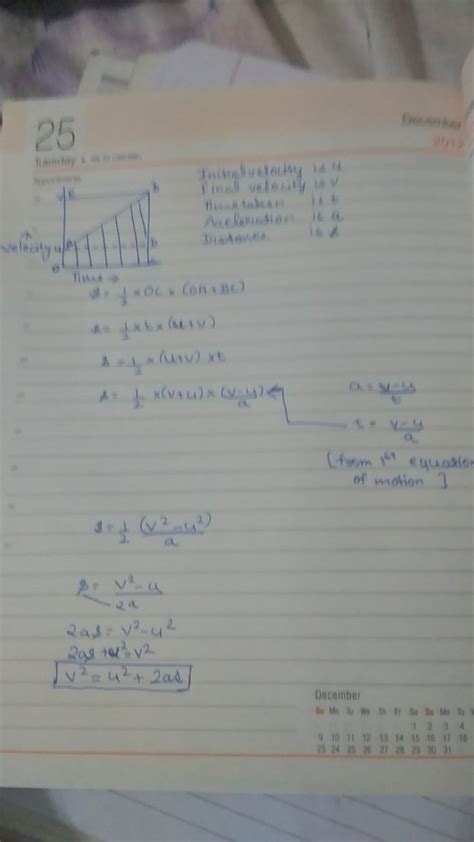 25
December
Tuesday
Appointments
2012
Initial velocity is u
Final velocity is v
Time taken is t
Acceleration is a
Distance is s
velocity
Time →
s = 1/2 × OC × (OA + BC)
s = 1/2 × t × (u+v)
s = 1/2 × (u+v) × t
s = 1/2 × (v+u) × (v-u)/a
a = v-u/t
t = v-u/a
[from 1st equation
of motion ]
s = 1/2 (v²-u²)/a
s = v²-u/2a
2as = v²-u²
2as + u² = v²
v² = u² + 2as
December
Su Mo Tu We Th Fr Sa Su Mo Tu
1 2 3 4
9 10 11 12 13 14 15 16 17 18
23 24 25 26 27 28 29 30 31